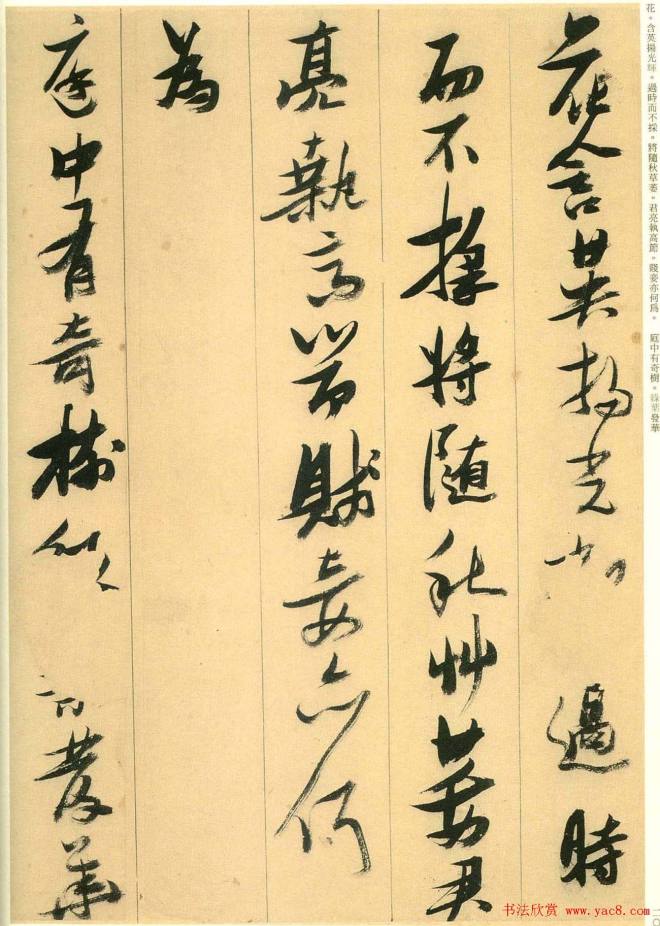 花含英揚光輝過時
而不採將隨秋草萎君
亮執高節賤妾亦何
為
庭中有奇樹綠葉發華
花。含英揚光輝。過時而不採。將隨秋草萎。君亮執高節。賤妾亦何爲。　庭中有奇樹。綠葉發華
書法欣賞 www.yac8.com